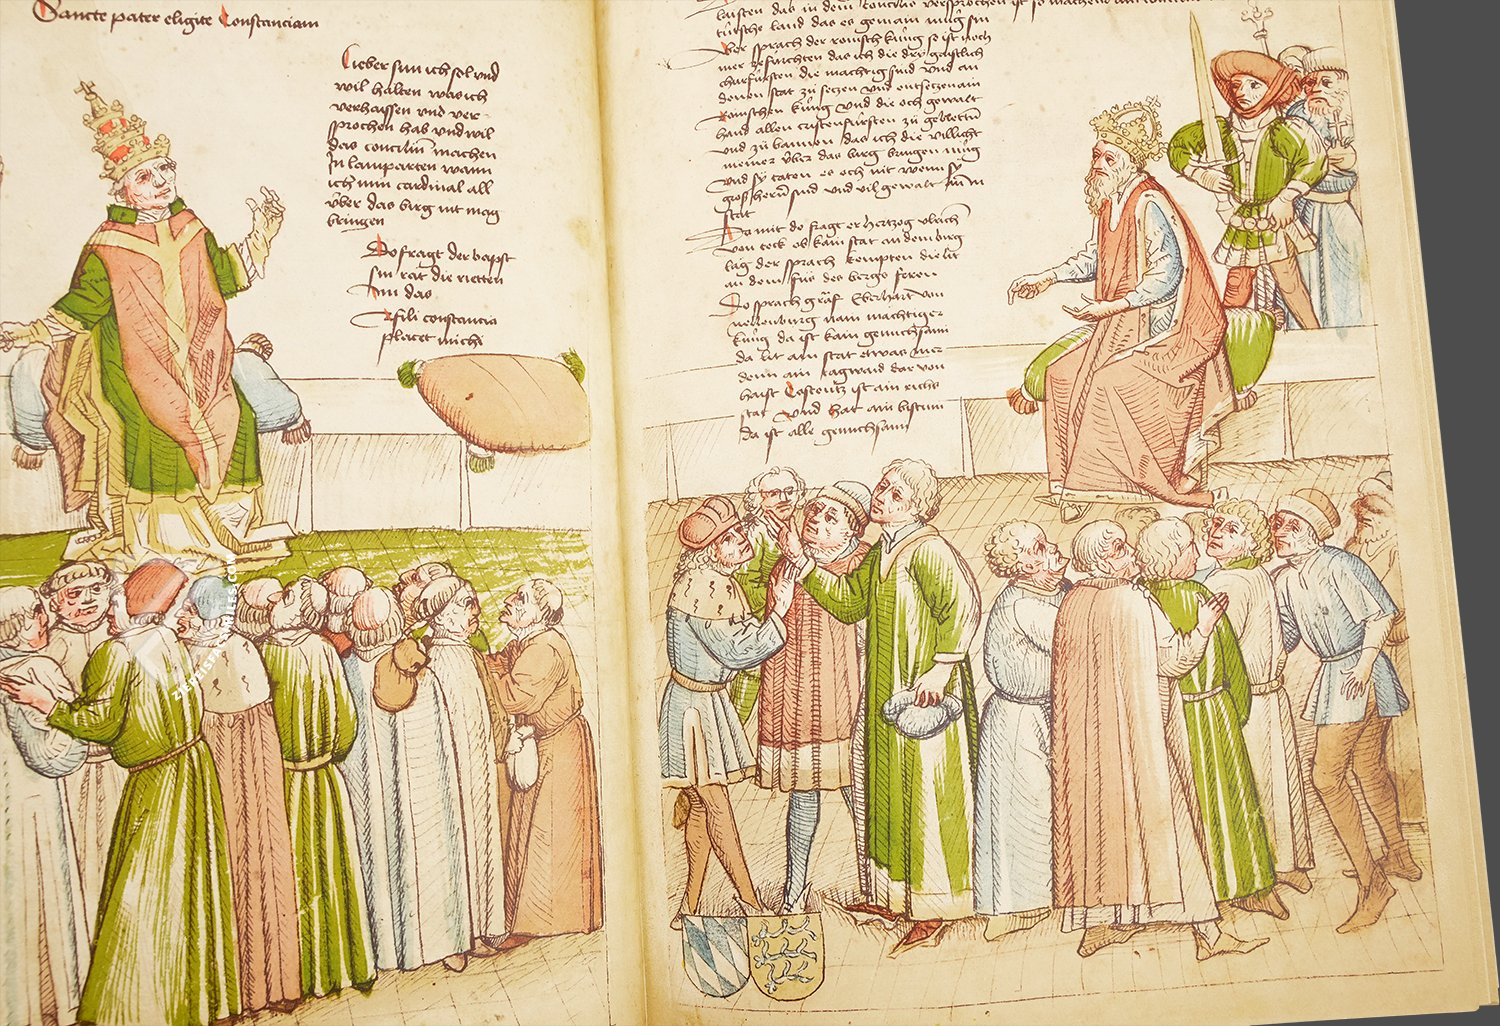 Sancte pater eligite Constanciam
Lieber sun ich sol und
wil halten waz ich
verhaissen und ver-
sprochen hab und wil
das concilium machen
In lamparten wann
ich min cardinal all
über das birg nit mag
bringen
Do fragt der bapst
sin rät die rietten
Im das
O fili constancia
placet michi
laisten das in dem Concilio versprochen ist so machend
tütsche land das es gemain müg sin
Der sprach der römsch küng so ist noch
mer ze fürchten das ich die dry gaistlich
churfürsten die mächtig sind und an
denen stat zu setzen und entsetzen ain
Römschen küng und die och gewalt
hand allen cristenfürsten zü gebietten
und zü bannen das ich die villicht
meiner über das birg bringen müg
und sy täten es och nit wenn sy
groß herren sind und vil gewalt
stat
Da mit do fragt er hertzog ulrich
von teck ob kain stat an dem birg
läg der sprach kempten die lit
an dem füs des birgs
Do sprach gräf Eberhart von
nellenburg mächtiger
küng da ist kain genuchsami
da lit ain stat etwas
denn ain tagwaid dar von
haist Costentz ist ain richs
stat und hat ain bistum
da ist alle genuchsami
ZIEREISFACSIMILES.COM